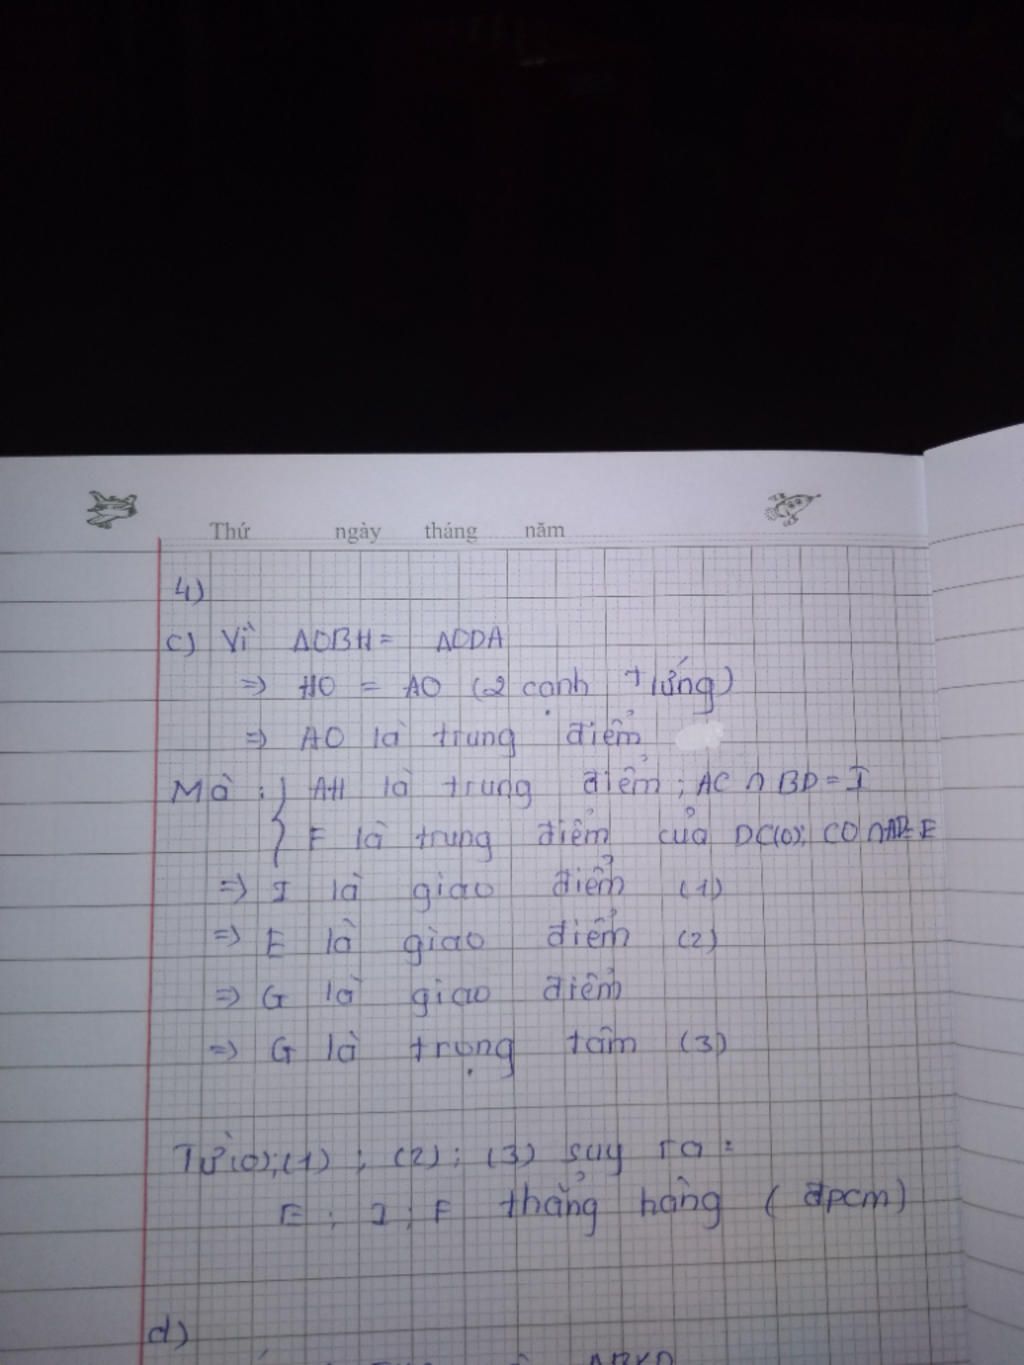 Thứ ngày tháng năm
4)
c) Vì ΔOBH = ΔODA
=> HO = AO (2 cạnh tứng)
=> AO là trung điểm
Mà: { AH là trung điểm; AC ∩ BD = I
F là trung điểm của DC(0); CO ∩ AD = E
=> I là giao điểm (1)
=> E là giao điểm (2)
=> G là giao điểm
=> G là trọng tâm (3)
Từ (0); (1); (2); (3) suy ra:
E; I; F thẳng hàng (đpcm)
d)